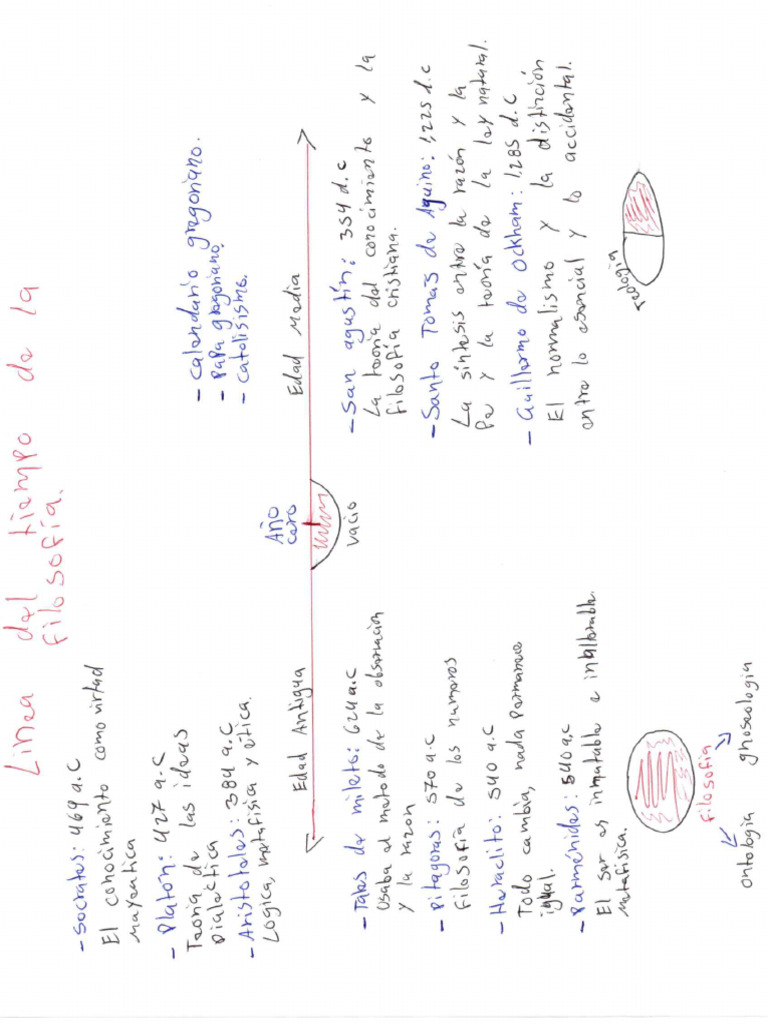 Linea del tiempo de la
filosofía.
- Socrates: 469 a.C
El conocimiento como virtud
mayeutica
- Platon: 427 a.C
Teoria de las ideas
Dialectica
- Aristoteles: 384 a.C
Logica, metafisica y etica.
- Calendario gregoriano.
- Papa gregoriano.
- Catolisismo.
Edad Antigua
Año
cero
Edad Media
vacio
- Tales de mileto: 624 a.C
Usaba el metodo de la observacion
y la razon
- Pitagoras: 570 a.C
filosofia de los numeros
- Heraclito: 540 a.C
Todo cambia, nada permanece
igual.
- Parménides: 540 a.C
El ser es inmutable e inalterable.
metafisica.
- San agustín: 354 d.C
La teoría del conocimiento y la
filosofía cristiana.
- Santo Tomas de Aquino: 1,225 d.C
La síntesis entre la razón y la
Fe y la teoría de la ley natural.
- Guillermo de Ockham: 1,285 d.C
El normalismo y la distinción
entre lo esencial y lo accidental.
filosofia
ontologia
ghoseologia
Teologia